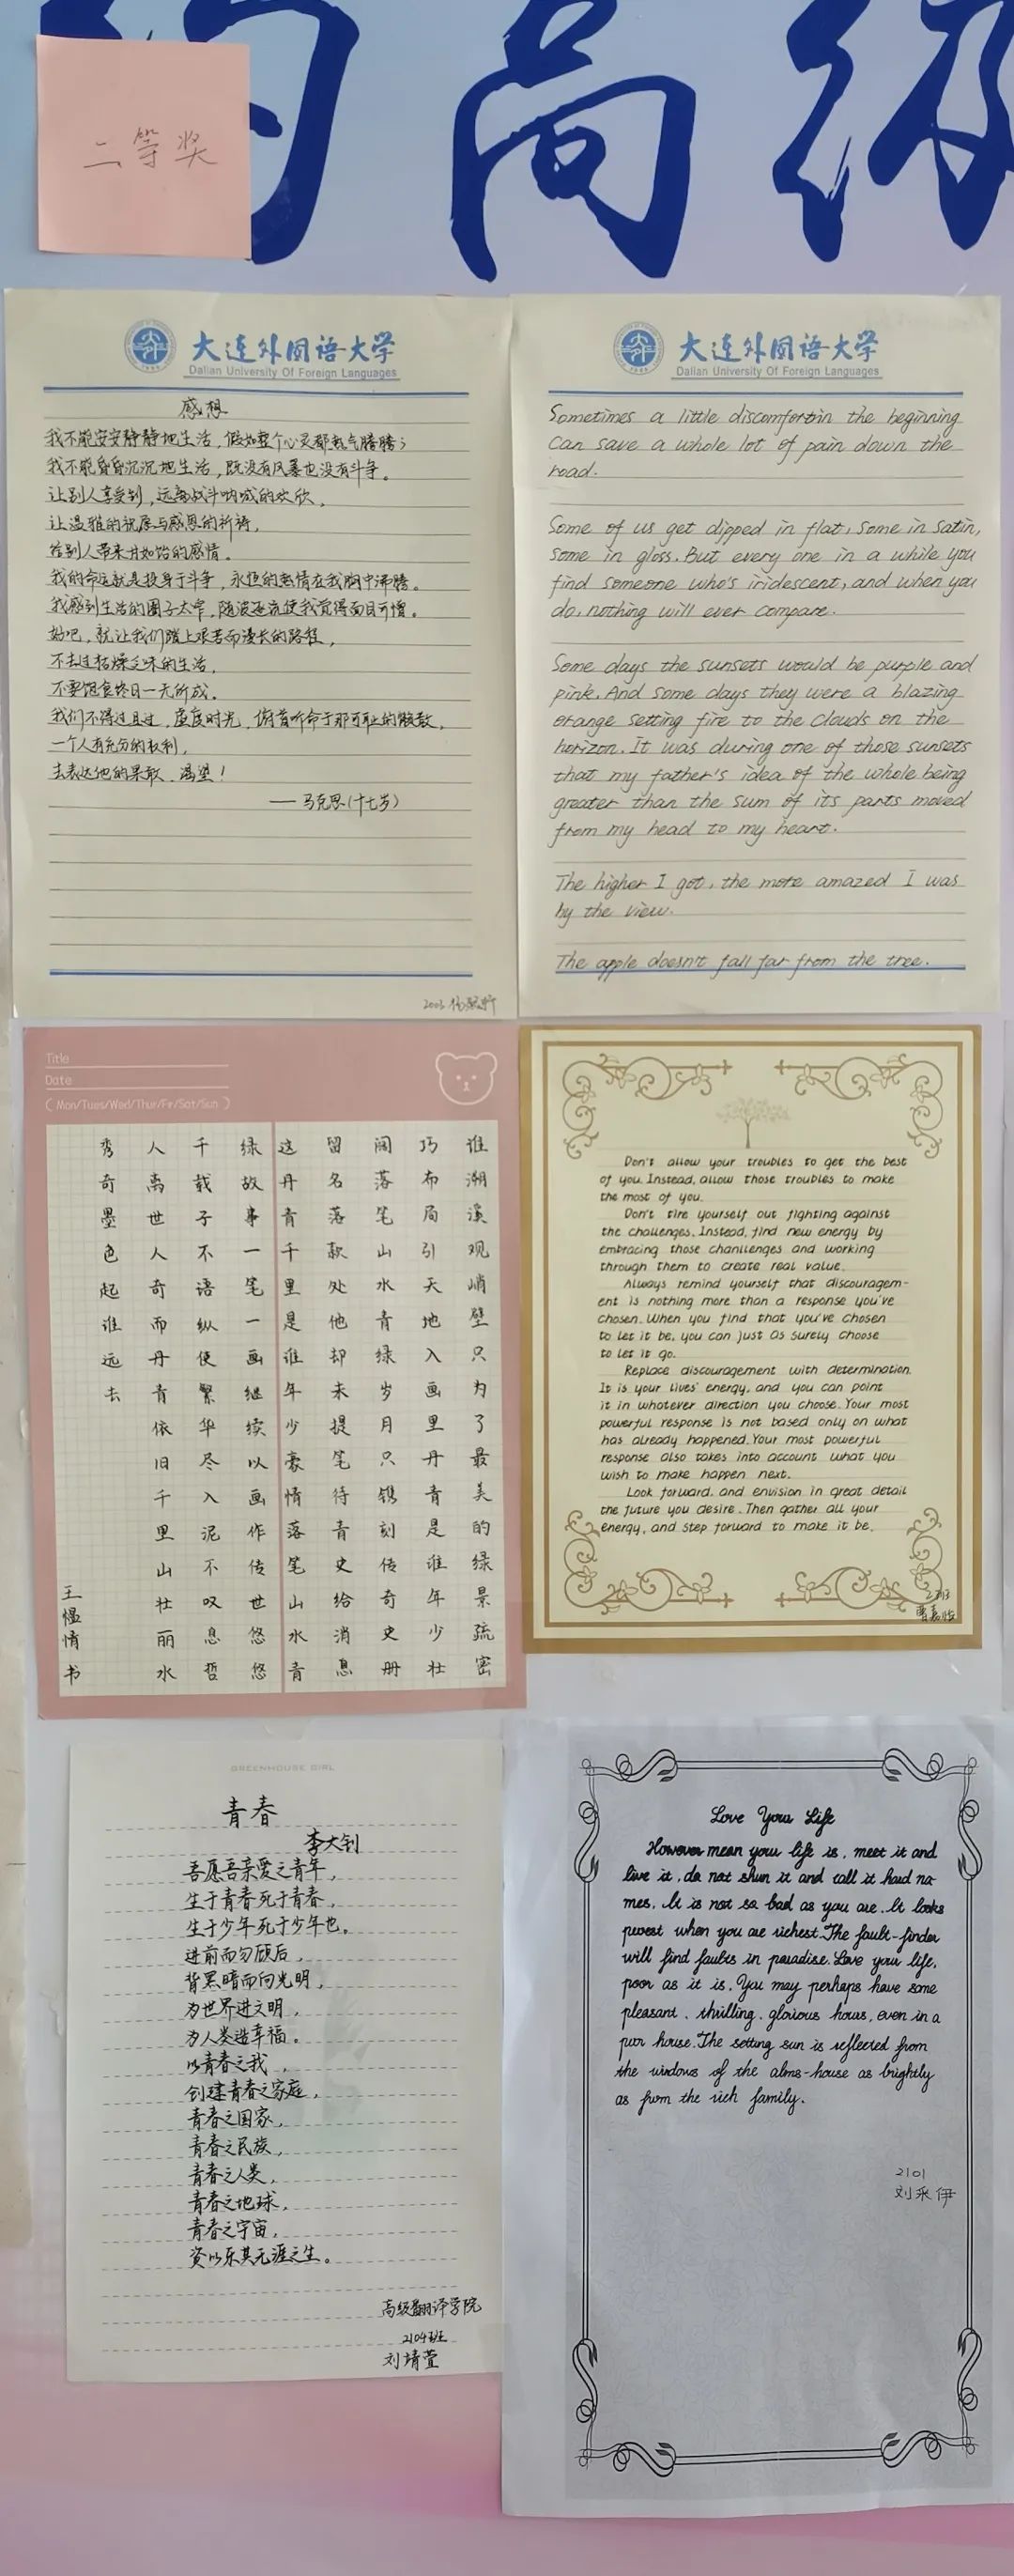 高
二等奖
大连外国语大学
Dalian University Of Foreign Languages
感想
我不能安安静静地生活，假如整个心灵都热气腾腾；
我不能昏昏沉沉地生活，既没有风暴也没有斗争。
让别人享受到，远离战斗呐喊的欢欣，
让温雅的祝愿与感恩的祈祷，
给别人带来甘如饴的感情。
我的命运就是投身于斗争，永恒的热情在我胸中沸腾。
我感到生活的圈子太窄，随波逐流使我觉得面目可憎。
好吧，就让我们踏上艰苦而漫长的路程，
不去过枯燥乏味的生活，
不要饱食终日一无所成。
我们不得过且过，虚度时光，俯首听命于那可耻的
一个人有充分的权利，
去表达他的果敢、渴望！
—— 马克思(十七岁)
大连外国语大学
Dalian University Of Foreign Languages
Sometimes a little discomfortin the beginning
can save a whole lot of pain down the
road.
Some of us get dipped in flat, some in satin,
some in gloss. But every one in a while you
find someone who's iridescent, and when you
do, nothing will ever compare.
Some days the sunsets would be purple and
pink. And some days they were a blazing
orange setting fire to the clouds on the
horizon. It was during one of those sunsets
that my father's idea of the whole being
greater than the sum of its parts moved
from my head to my heart.
The higher I got, the more amazed I was
by the view.
The apple doesn't fall far from the tree.
Title
Date
( Mon/Tues/Wed/Thur/Fr/Sat/Sun )
谁溯溪观峭壁只为了最美的绿景疏密
巧布局引天地入画里丹青是谁年少壮
阔落笔山水青绿岁月只镌刻传奇史册
留名落款处他却未提笔待青史给消息
这丹青千里是谁年少豪情落笔山水青
绿故事一笔一画继续以画作传世悠悠
千载子不语纵使繁华尽入泥不叹息哲
人离世人奇而丹青依旧千里山壮丽水
秀奇墨色起谁远去
王愠情书
Don't allow your troubles to get the best
of you. Instead, allow those troubles to make
the most of you.
Don't tire yourself out fighting against
the challenges. Instead, find new energy by
embracing those chanllenges and working
through them to create real value.
Always remind yourself that discouragem-
ent is nothing more than a response you've
chosen. When you find that you've chosen
to let it be, you can just as surely choose
to let it go.
Replace discouragement with determination.
It is your lives' energy, and you can point
it in whatever direction you choose. Your most
powerful response is not based only on what
has already happened. Your most powerful
response also takes into account what you
wish to make happen next.
Look forward, and envision in great detail
the future you desire. Then gather all your
energy, and step forward to make it be.
GREENHOUSE GIRL
青春
李大钊
吾愿吾亲爱之青年，
生于青春死于青春，
生于少年死于少年也。
进前而勿顾后，
背黑暗而向光明，
为世界进文明，
为人类造幸福。
以青春之我，
创建青春之家庭，
青春之国家，
青春之民族，
青春之人类，
青春之地球，
青春之宇宙，
资以乐其无涯之生。
高级翻译学院
2104班
刘靖萱
Love Your Life
However mean your life is, meet it and
live it, do not shun it and call it hard na-
mes. It is not so bad as you are. It looks
poorest when you are richest. The fault-finder
will find faults in paradise. Love your life,
poor as it is. You may perhaps have some
pleasant, thrilling, glorious hours, even in a
poor house. The setting sun is reflected from
the windows of the alms-house as brightly
as from the rich family.
2101
刘采伊